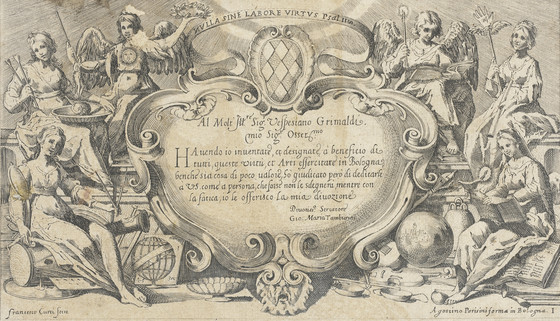 NVLLA SINE LABORE VIRTVS
Al Molt Ill.re Sig.r Vespesiano Grimaldi.
mio Sig.r Osser.mo
Havendo io inventate, et designate a beneficio di
tutti queste virtù et Arti essercitate in Bologna
benche sia cosa di poco valore, ho giudicato però di dedicarle
a VS. come a persona, che forse non le sdegnerà mentre con
la fatica, io le offerisco la mia divozione.
Seruitore
Gio. Maria Tamburini
Francesco Curti fecit
Agostino Parisini forma in Bologna 1